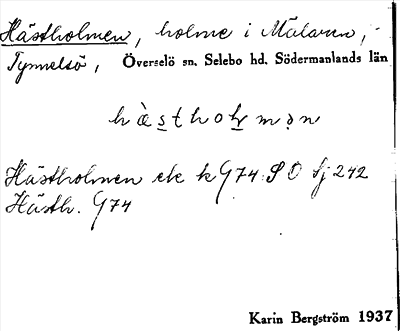 Hästholmen, holme i Mälaren,
Tynnelsö, Överselö sn. Selebo hd. Södermanlands län
Hästholmen ek k G74 SO Sj 242
Hästh. G74
Karin Bergström 1937